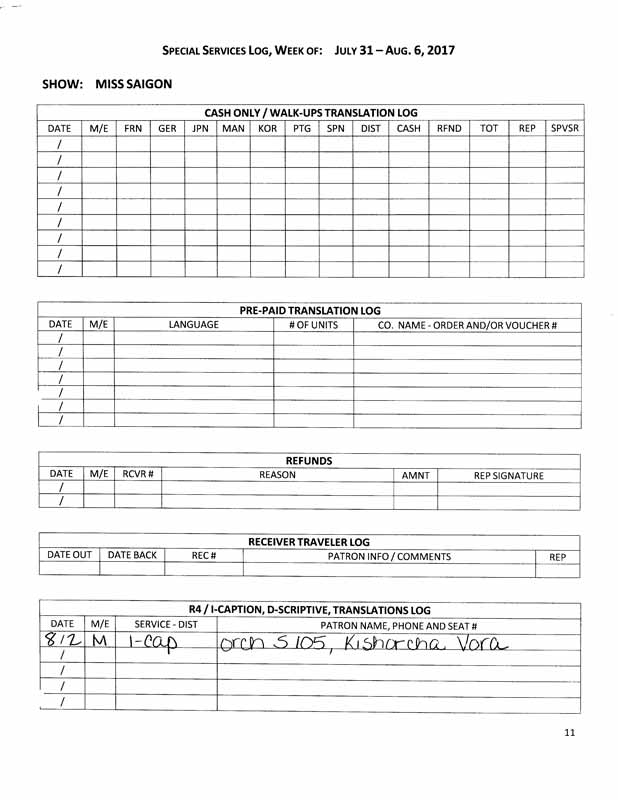 SPECIAL SERVICES LOG, WEEK OF: JULY 31 – AUG. 6, 2017
SHOW: MISS SAIGON
CASH ONLY / WALK-UPS TRANSLATION LOG
DATE M/E FRN GER JPN MAN KOR PTG SPN DIST CASH RFND TOT REP SPVSR
/
/
/
/
/
/
/
/
/
PRE-PAID TRANSLATION LOG
DATE M/E LANGUAGE # OF UNITS CO. NAME - ORDER AND/OR VOUCHER #
/
/
/
/
/
/
/
REFUNDS
DATE M/E RCVR # REASON AMNT REP SIGNATURE
/
/
RECEIVER TRAVELER LOG
DATE OUT DATE BACK REC # PATRON INFO / COMMENTS REP
R4 / I-CAPTION, D-SCRIPTIVE, TRANSLATIONS LOG
DATE M/E SERVICE - DIST PATRON NAME, PHONE AND SEAT #
8/2 M I-cap orch S 105, Vora
/
/
/
/
11